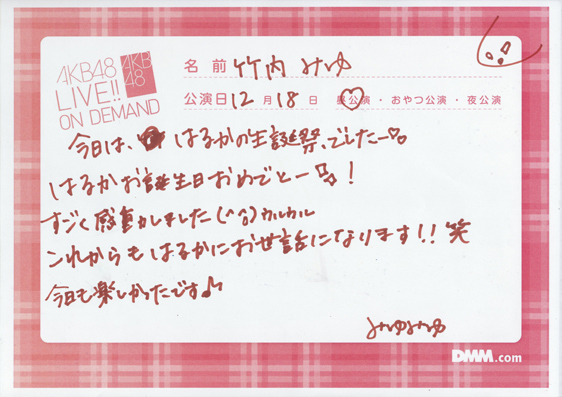 AKB48
LIVE!!
ON DEMAND
AKB
48
名前 竹内 みゆ
公演日 12月18日 昼公演・おやつ公演・夜公演
今日は、はるかの生誕祭、でしたー♡
はるかお誕生日おめでとー!
すごく感動しました(^o^)カルカル
これからもはるかにお世話になります!!笑
今日も楽しかったです♪
みゆみゆ
DMM.com